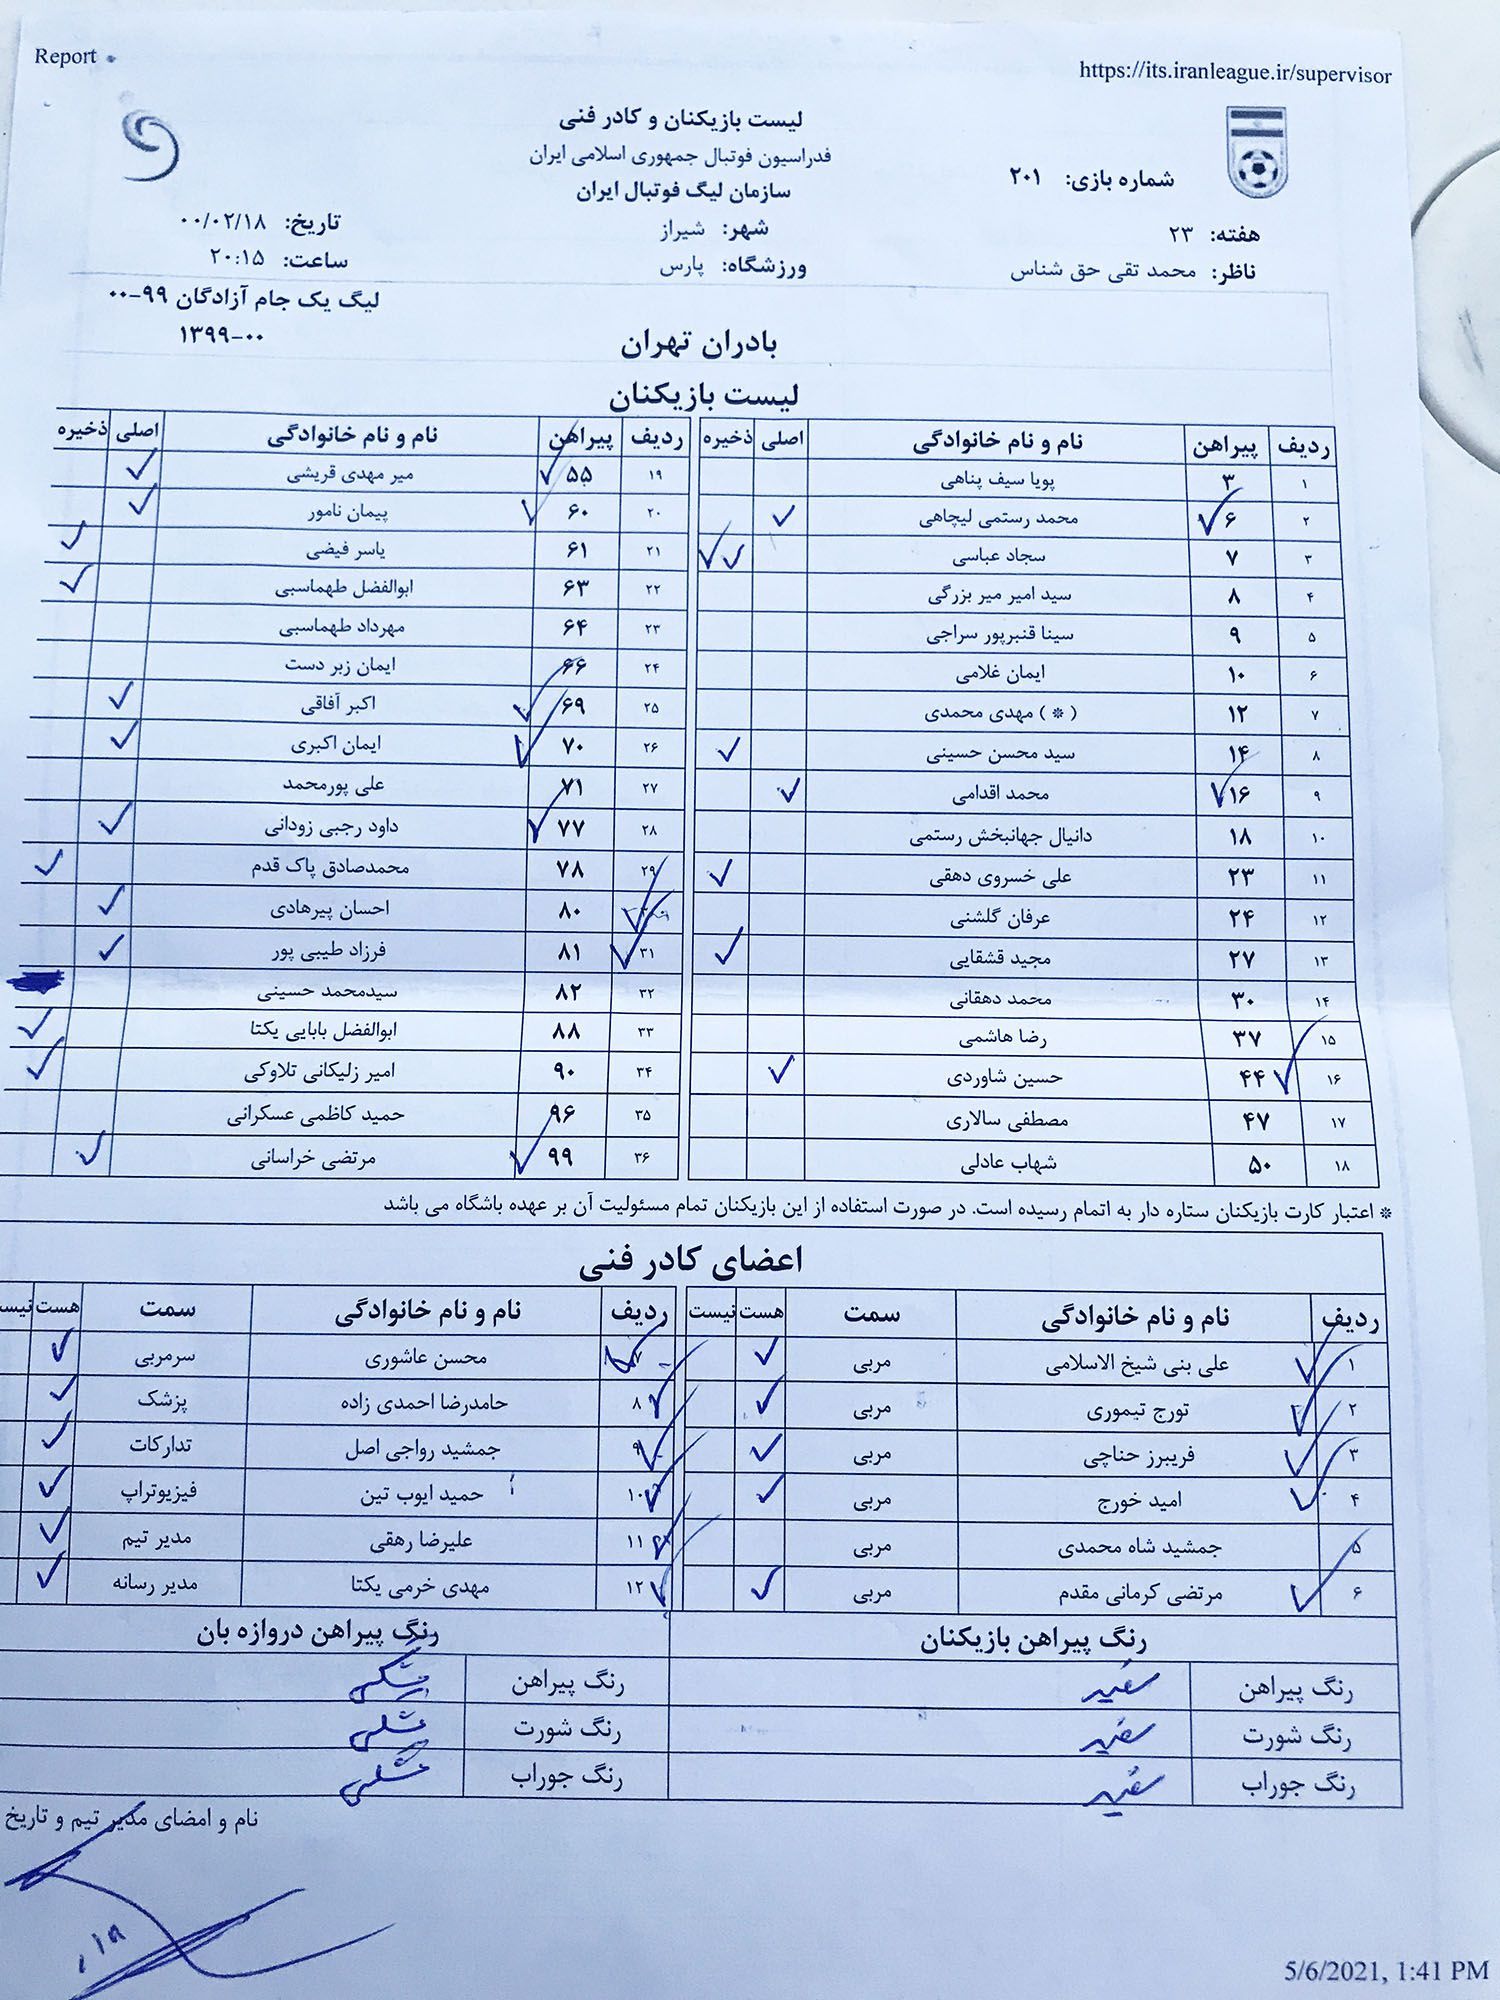 Report
https://its.iranleague.ir/supervisor
لیست بازیکنان و کادر فنی
فدراسیون فوتبال جمهوری اسلامی ایران
سازمان لیگ فوتبال ایران
شماره بازی: ۲۰۱
هفته: ۲۳
شهر: شیراز
تاریخ: ۰۰/۰۲/۱۸
ناظر: محمد تقی حق شناس
ورزشگاه: پارس
ساعت: ۲۰:۱۵
لیگ یک جام آزادگان ۹۹-۰۰
۱۳۹۹-۰۰
بادران تهران
لیست بازیکنان
ردیف پیراهن نام و نام خانوادگی اصلی ذخیره ردیف پیراهن نام و نام خانوادگی اصلی ذخیره
۱ ۳ پویا سیف پناهی ۱۹ ۵۵ میر مهدی قریشی
۲ ۶ محمد رستمی لیچاهی ۲۰ ۶۰ پیمان نامور
۳ ۷ سجاد عباسی ۲۱ ۶۱ یاسر فیضی
۴ ۸ سید امیر میر بزرگی ۲۲ ۶۳ ابوالفضل طهماسبی
۵ ۹ سینا قنبرپور سراجی ۲۳ ۶۴ مهرداد طهماسبی
۶ ۱۰ ایمان غلامی ۲۴ ۶۶ ایمان زبر دست
۷ ۱۲ ( * ) مهدی محمدی ۲۵ ۶۹ اکبر آفاقی
۸ ۱۴ سید محسن حسینی ۲۶ ۷۰ ایمان اکبری
۹ ۱۶ محمد اقدامی ۲۷ ۷۱ علی پورمحمد
۱۰ ۱۸ دانیال جهانبخش رستمی ۲۸ ۷۷ داود رجبی زودانی
۱۱ ۲۳ علی خسروی دهقی ۲۹ ۷۸ محمدصادق پاک قدم
۱۲ ۲۴ عرفان گلشنی ۸۰ احسان پیرهادی
۱۳ ۲۷ مجید قشقایی ۳۱ ۸۱ فرزاد طیبی پور
۱۴ ۳۰ محمد دهقانی ۳۲ ۸۲ سیدمحمد حسینی
۱۵ ۳۷ رضا هاشمی ۳۳ ۸۸ ابوالفضل بابایی یکتا
۱۶ ۴۴ حسین شاوردی ۳۴ ۹۰ امیر زلیکانی تلاوکی
۱۷ ۴۷ مصطفی سالاری ۳۵ ۹۶ حمید کاظمی عسکرانی
۱۸ ۵۰ شهاب عادلی ۳۶ ۹۹ مرتضی خراسانی
* اعتبار کارت بازیکنان ستاره دار به اتمام رسیده است. در صورت استفاده از این بازیکنان تمام مسئولیت آن بر عهده باشگاه می باشد
اعضای کادر فنی
ردیف نام و نام خانوادگی سمت هست نیست ردیف نام و نام خانوادگی سمت هست
۱ علی بنی شیخ الاسلامی مربی ۷ محسن عاشوری سرمربی
۲ تورج تیموری مربی ۸ حامدرضا احمدی زاده پزشک
۳ فریبرز حناچی مربی ۹ جمشید رواجی اصل تدارکات
۴ امید خورج مربی ۱۰ حمید ایوب تین فیزیوتراپ
۵ جمشید شاه محمدی مربی ۱۱ علیرضا رهقی مدیر تیم
۶ مرتضی کرمانی مقدم مربی ۱۲ مهدی خرمی یکتا مدیر رسانه
رنگ پیراهن بازیکنان رنگ پیراهن دروازه بان
رنگ پیراهن سفید رنگ پیراهن مشکی
رنگ شورت سفید رنگ شورت مشکی
رنگ جوراب سفید رنگ جوراب مشکی
نام و امضای مدیر تیم و تاریخ
5/6/2021, 1:41 PM